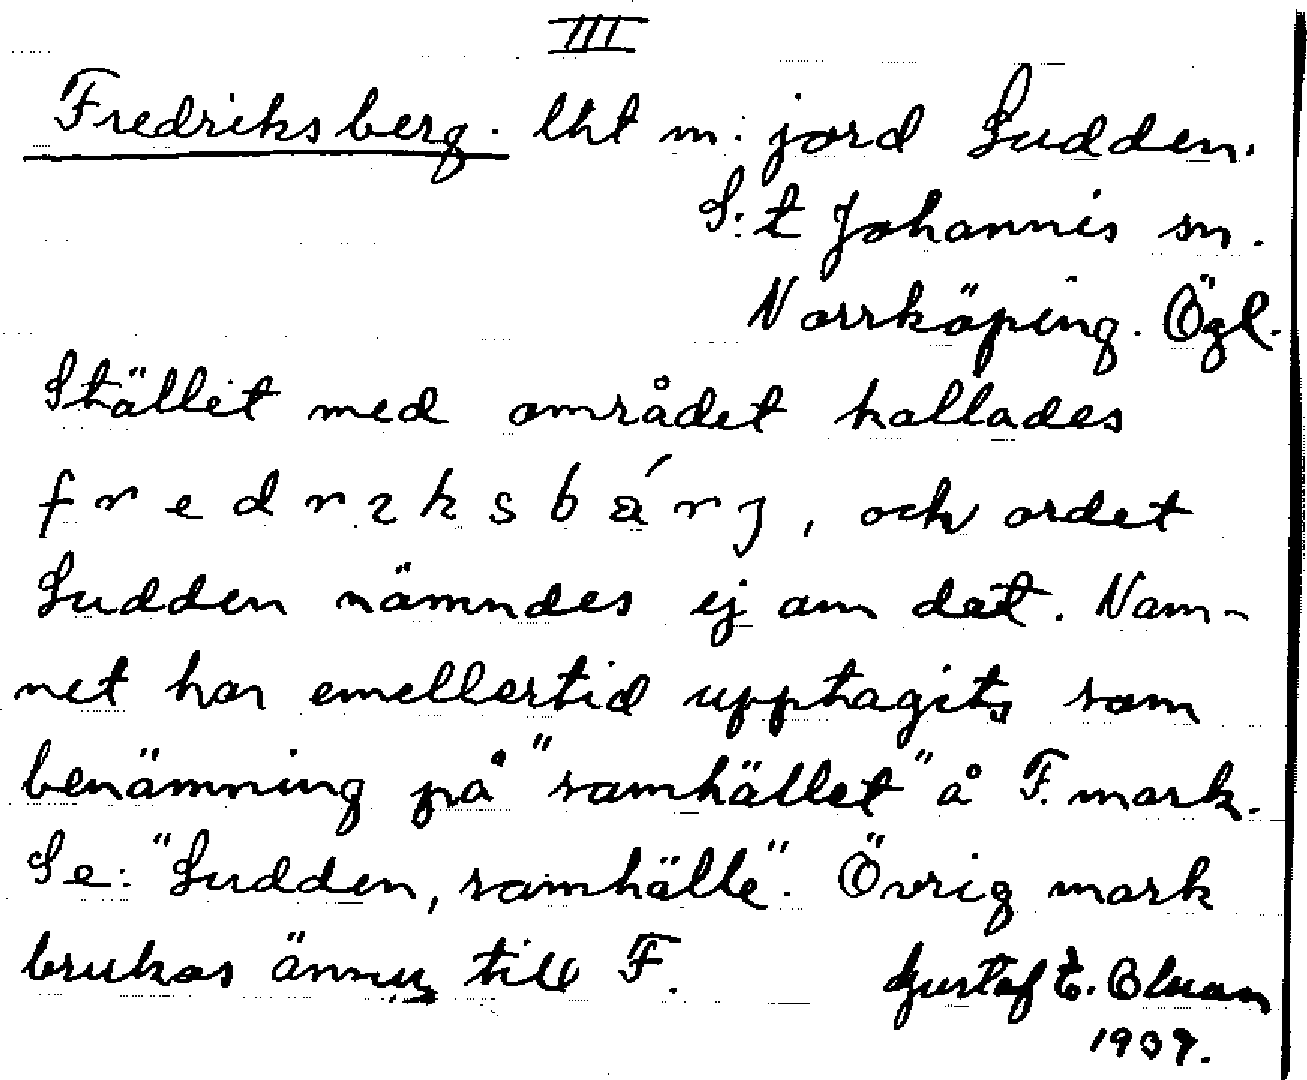 III
Fredriksberg. lht m. jord Sudden.
S:t Johannis sn.
Norrköping. Ögl.
Stället med området kallades
fredrɩksbárj, och ordet
Sudden nämndes ej om det. Nam-
net har emellertid upptagits som
benämning på "samhället" å F. mark.
Se: "Sudden, samhälle". Övrig mark
brukas ännu till F.
Gustaf E.